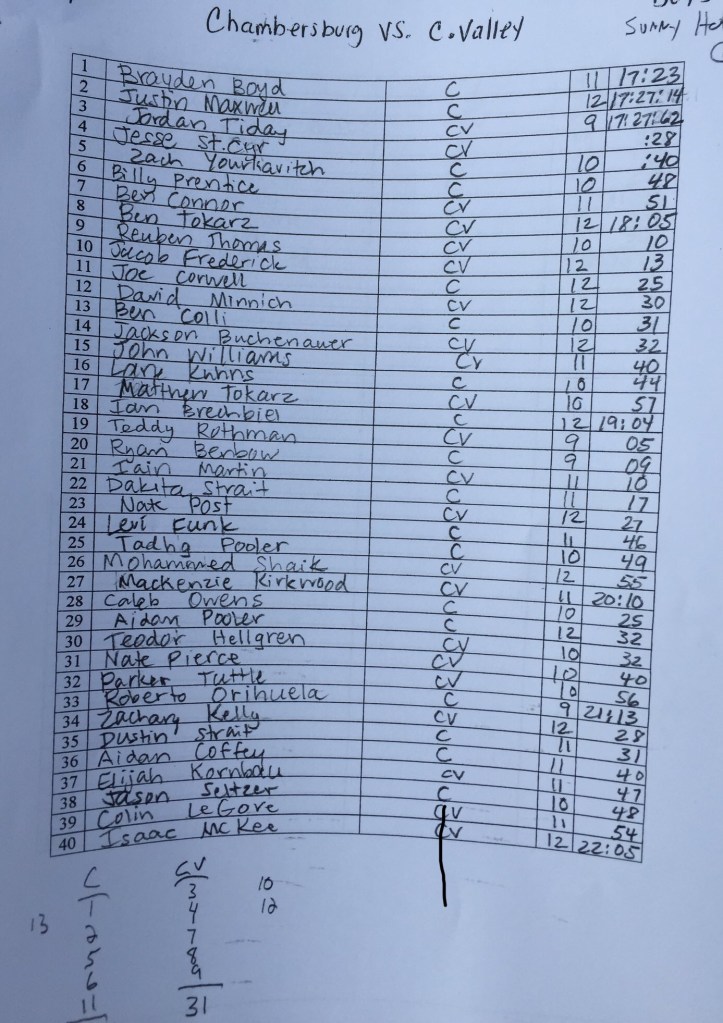 Chambersburg vs. C.Valley
Sunny
1 Brayden Boyd C 11 17:23
2 Justin Maxwell C 12 17:27:14
3 Jordan Tiday CV 9 17:27:62
4 Jesse St.Cyr CV :28
5 Zach Yourkavitch C 10 :40
6 Billy Prentice C 10 48
7 Ben Connor CV 11 51
8 Ben Tokarz CV 12 18:05
9 Reuben Thomas CV 10 10
10 Jacob Frederick CV 12 13
11 Joe Corwell C 12 25
12 David Minnich CV 12 30
13 Ben Colli C 10 31
14 Jackson Buchenauer CV 12 32
15 John Williams CV 11 40
16 Lane Kuhns C 10 44
17 Matthew Tokarz CV 10 57
18 Ian Brechbiel C 12 19:04
19 Teddy Rothman CV 9 05
20 Ryan Benbow C 9 09
21 Iain Martin CV 11 10
22 Dakita Strait C 11 17
23 Nate Post CV 12 27
24 Levi Funk C 11 46
25 Tadhg Pooler C 10 49
26 Mohammed Shaik CV 12 55
27 Mackenzie Kirkwood CV 11 20:10
28 Caleb Owens C 10 25
29 Aidan Pooler C 12 32
30 Teodor Hellgren CV 10 32
31 Nate Pierce CV 10 40
32 Parker Tuttle CV 10 56
33 Roberto Orihuela C 9 21:13
34 Zachary Kelly CV 12 28
35 Dustin Strait C 11 31
36 Aidan Coffey C 11 40
37 Elijah CV 11 47
38 Jason Seltzer C 10 48
39 Colin LeGore CV 11 54
40 Isaac McKee CV 12 22:05
C CV
1 3 10
13 2 4 12
5 7
6 8
11 9
31